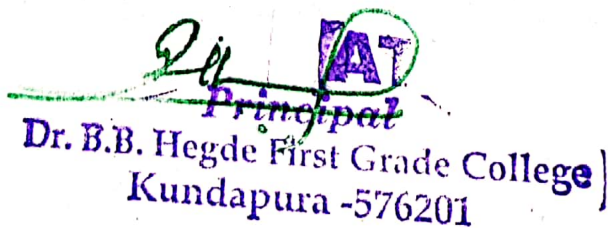 Principal
Dr. B.B. Hegde First Grade College
Kundapura -576201